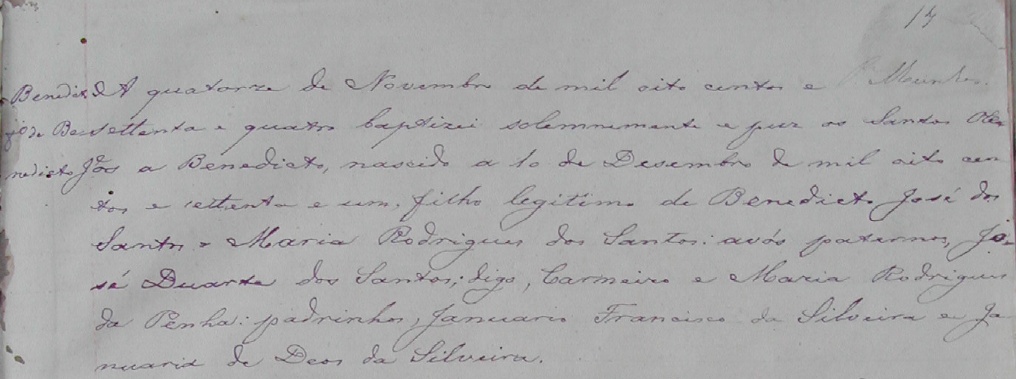 14
Benedicto A quatorze de Novembro de mil oito centos e
fº de Be- settenta e quatro baptizei solemnemente e puz os Santos Ole-
nedicto Jº dos os a Benedicto, nascido a 10 de Desembro de mil oito cen
tos e settenta e um, filho legitimo de Benedicto José dos
Santos e Maria Rodrigues dos Santos: avós paternos, Jo-
sé Duarte dos Santos; digo, Carneiro e Maria Rodrigues
da Penha: padrinhos, Januario Francisco da Silveira e Ja
nuaria de Deos da Silveira.